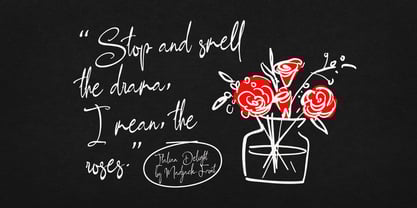 “Stop and smell
the drama,
I mean, the
roses.”
Thiluna Delight
by Madjack Font